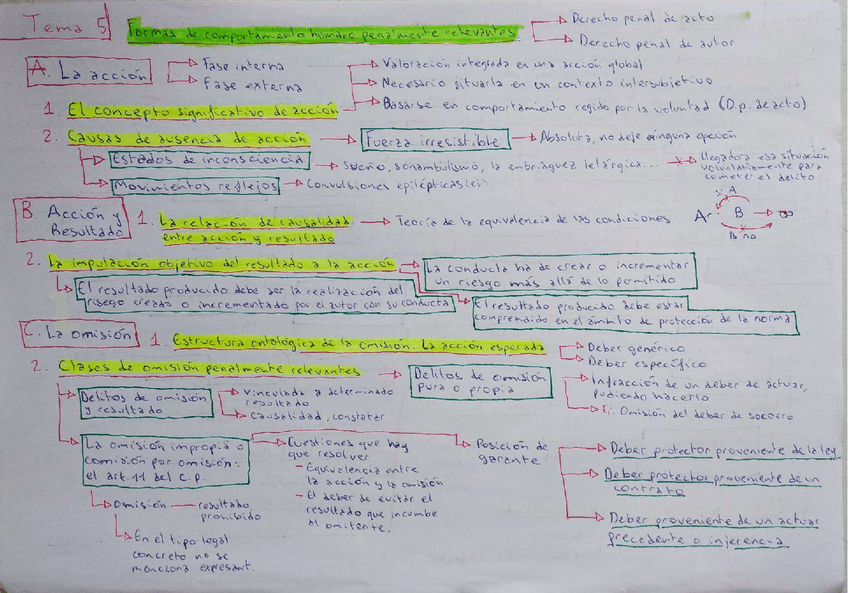 Tema 5
Formas de comportamiento humano penalmente relevantes
Derecho penal de acto
Derecho penal de autor
A. La acción
Fase interna
Fase externa
1. El concepto significativo de acción
Valoración integrada en una acción global
Necesario situarla en un contexto intersubjetivo
Basarse en comportamiento regido por la voluntad (D.p. de acto)
2. Causas de ausencia de acción
Fuerza irresistible
Absoluta, no deje ninguna opción
Estados de inconsciencia
Sueño, sonambulismo, la embriaguez letárgica...
llegado a esa situación
voluntariamente para
cometer el delito
Movimientos reflejos
Convulsiones epilépticas
B. Acción y
Resultado
1. La relación de causalidad
entre acción y resultado
Teoría de la equivalencia de las condiciones
si A
A B ∞
B no
2. La imputación objetivo del resultado a la acción
La conducta ha de crear o incrementar
un riesgo más allá de lo permitido
El resultado producido debe ser la realización del
riesgo creado o incrementado por el autor con su conducta
El resultado producido debe estar
comprendido en el ámbito de protección de la norma
C. La omisión
1. Estructura ontológica de la omisión. La acción esperada
Deber genérico
Deber específico
2. Clases de omisión penalmente relevantes
Delitos de omisión
pura o propia
Infracción de un deber de actuar,
pudiendo hacerlo
Ej: Omisión del deber de socorro
Delitos de omisión
y resultado
Vinculada a determinado
resultado
Causalidad, constatar
La omisión impropia o
comisión por omisión:
el art. 11 del C.P.
Cuestiones que hay
que resolver
- Equivalencia entre
la acción y la omisión
- El deber de evitar el
resultado que incumbe
al omitente.
Posición de
garante
Deber protector proveniente de la ley
Deber protector proveniente de un
contrato
Deber proveniente de un actuar
precedente o injerencia
Omisión — resultado
prohibido
En el tipo legal
concreto no se
menciona expresant.